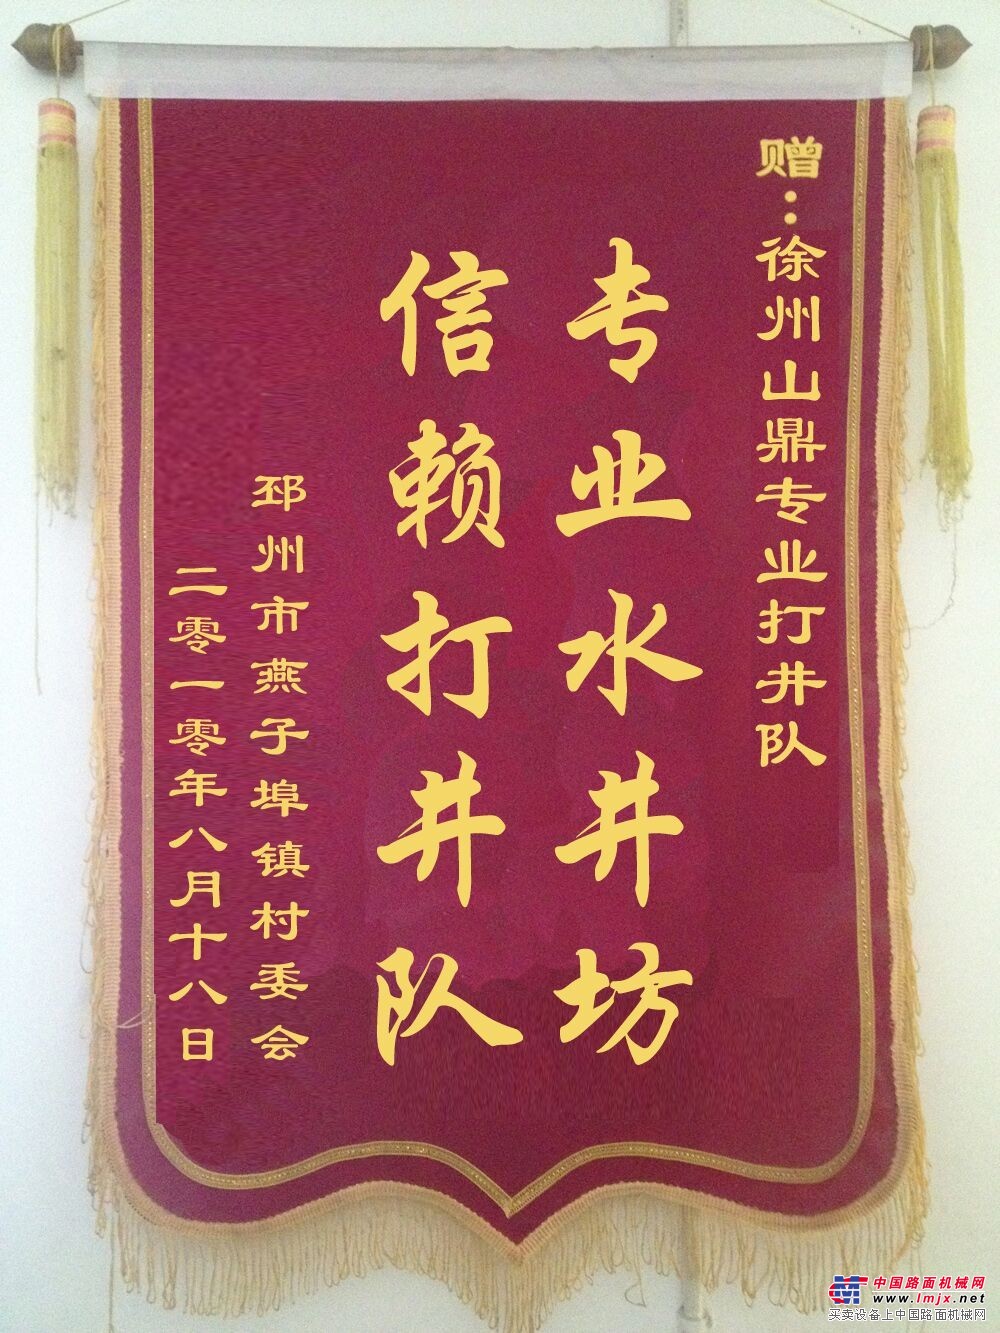 赠：徐州山鼎专业打井队
专业水井坊
信赖打井队
邳州市燕子埠镇村委会
二零一零年八月十八日
中国路面机械网
www.lmjx.net
买卖设备上中国路面机械网